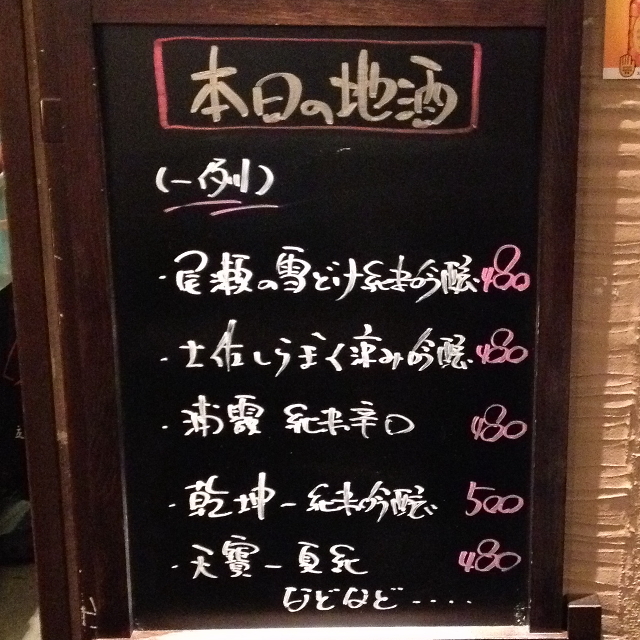 本日の地酒
(一例)
・尾瀬の雪どけ純米吟醸 480
・土佐しらぎく涼み吟醸 480
・浦霞 純米辛口 480
・乾坤一純米吟醸 500
・天寶一夏純 480
などなど‥‥